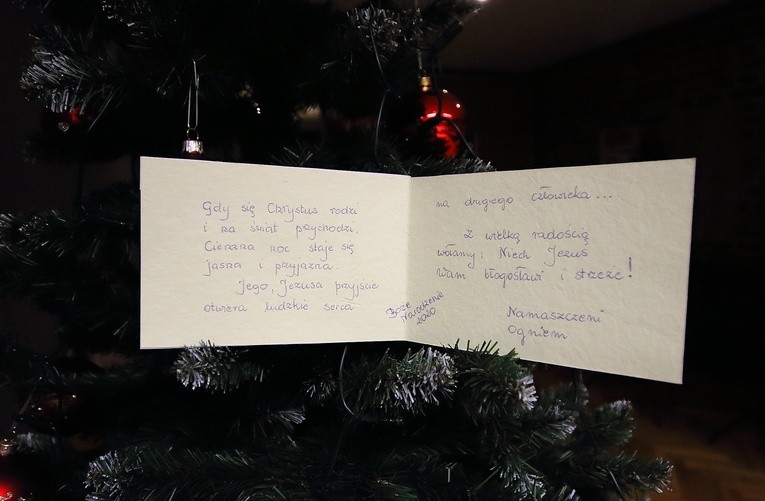 Gdy się Chrystus rodzi
i na świat przychodzi.
Ciemna noc staje się
jasna i przyjazna.
Jego, Jezusa przyjście
otwiera ludzkie serca
Boże
Narodzenie
2020
na drugiego człowieka...
Z wielką radością
wołamy: Niech Jezus
Wam błogosławi i strzeże!
Namaszczeni
Ogniem